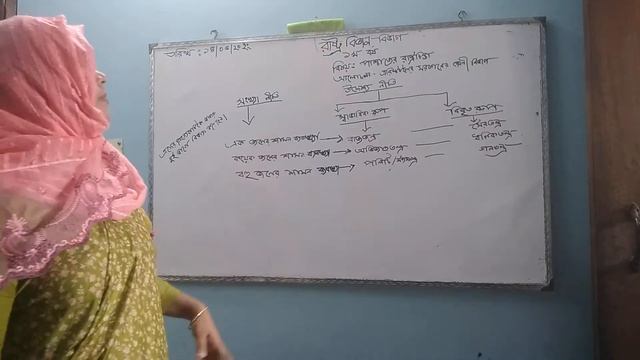 তারিখ : ১৪/০৬/২১
রাষ্ট্র বিজ্ঞান বিভাগ
১ম বর্ষ
বিষয়: পাশ্চাত্যের রাষ্ট্রচিন্তা
আলোচনা: এরিস্টটলের সরকারের শ্রেণী বিভাগ
উদ্দেশ্য নীতি
সংখ্যা নীতি
স্বাভাবিক রূপ
বিকৃত রূপ
এক জনের শাসন ব্যবস্থা
রাজতন্ত্র
স্বৈরতন্ত্র
কয়েক জনের শাসন ব্যবস্থা
অভিজাততন্ত্র
ধনিকতন্ত্র
বহু জনের শাসন ব্যবস্থা
পলিটি